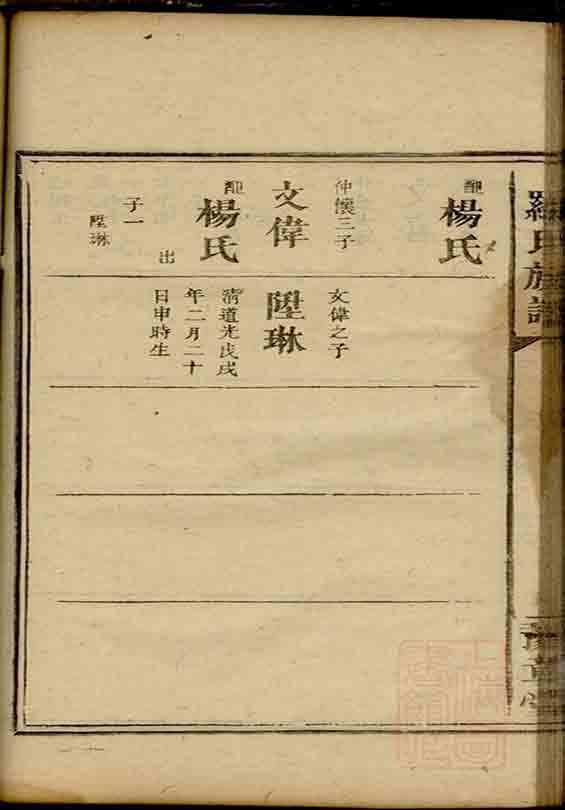 羅氏族譜
配楊氏
仲懷三子
文偉
配楊氏
出
子一
陞琳
文偉之子
陞琳
清道光戊戌
年二月二十
日申時生